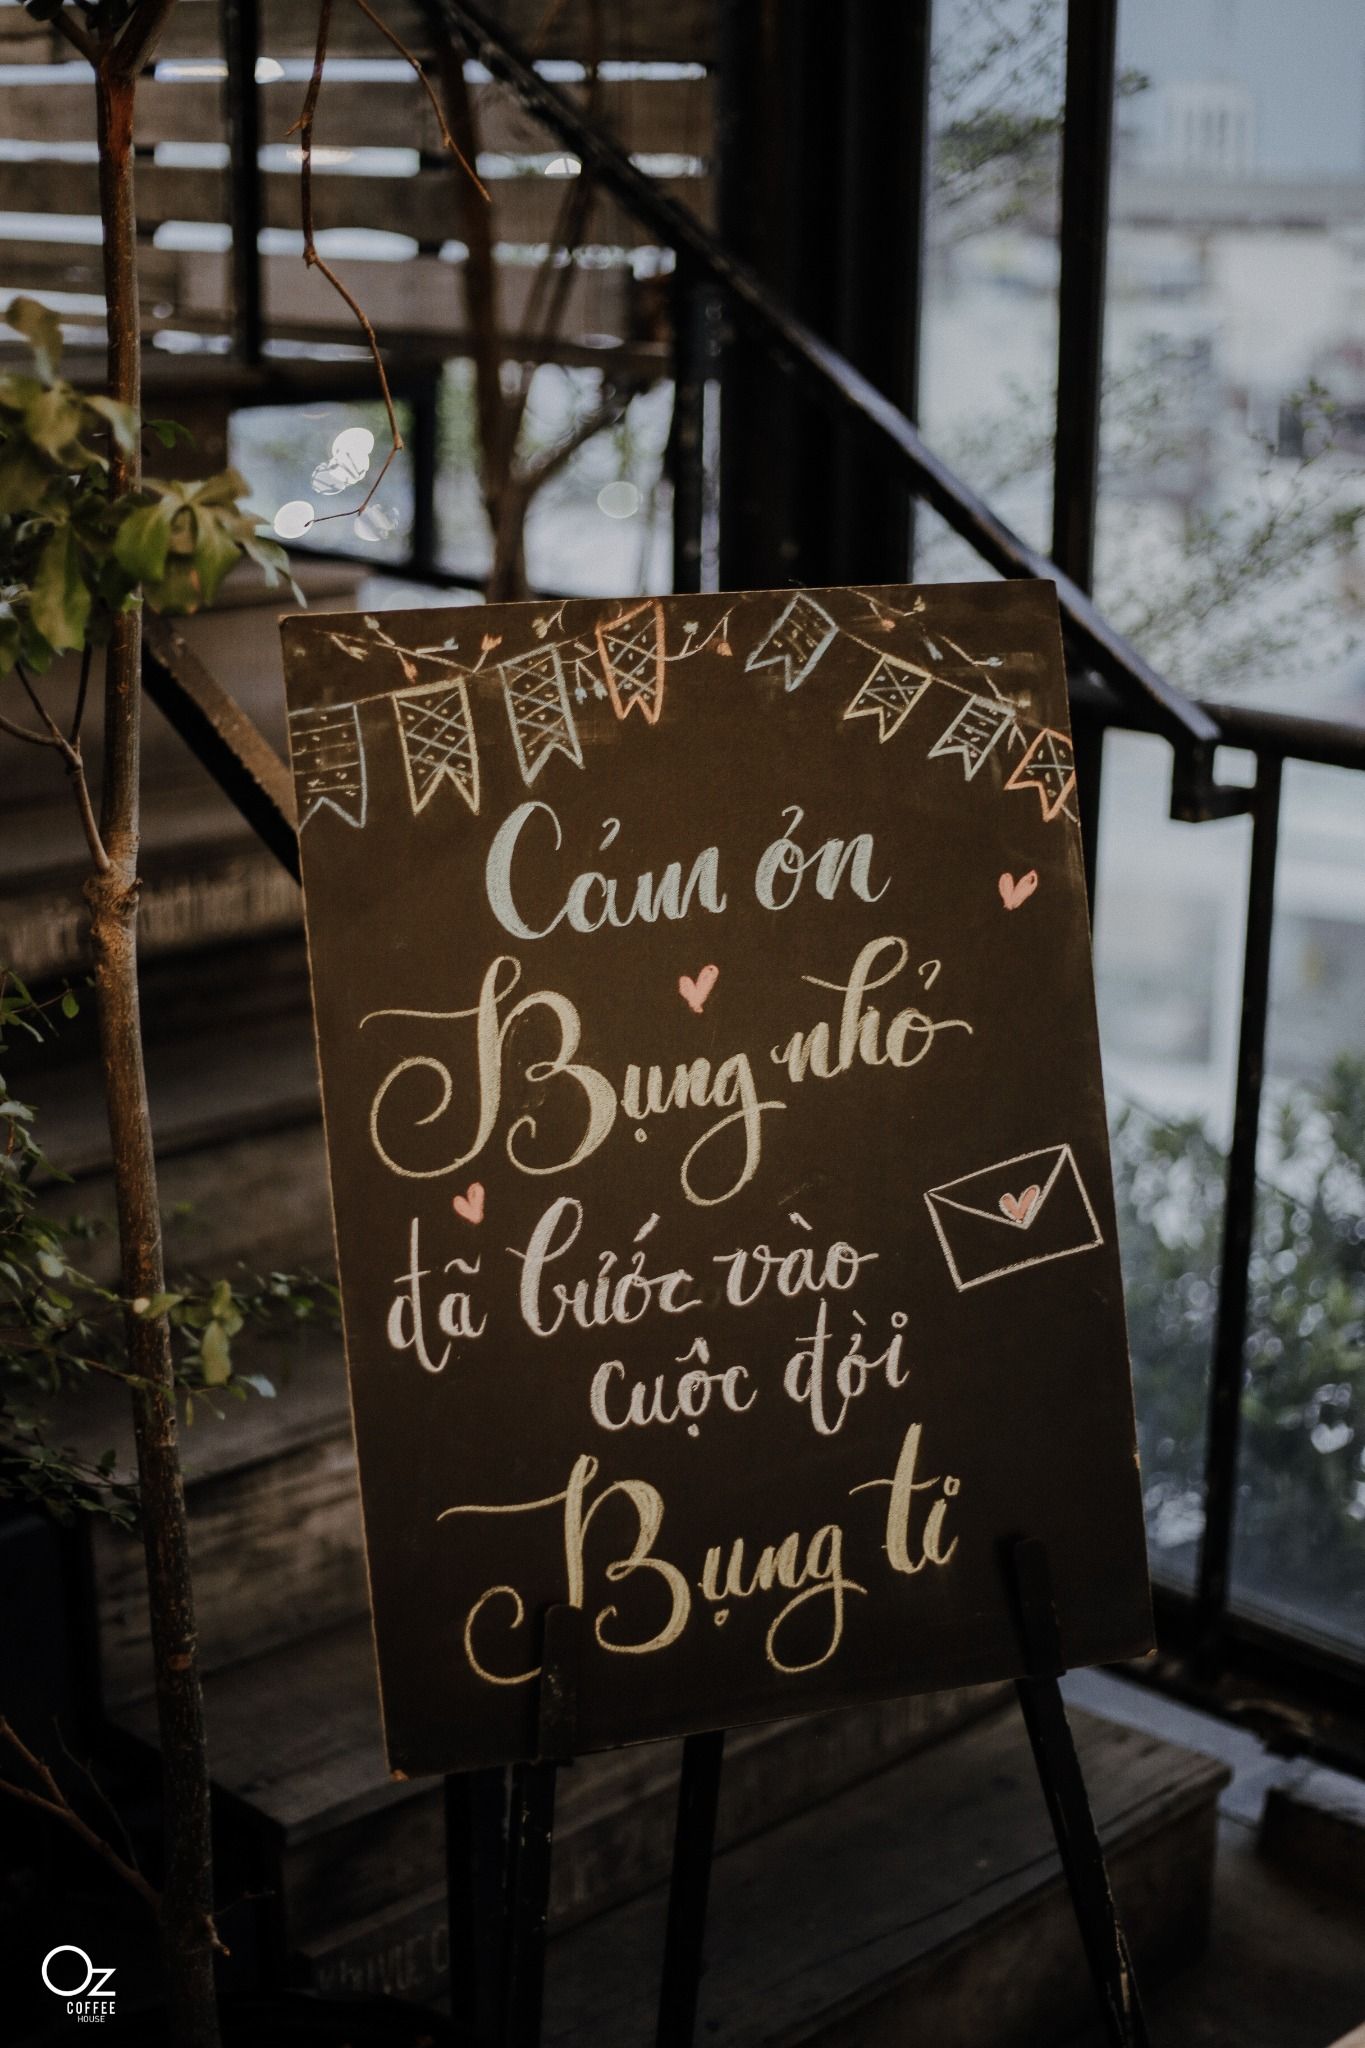 Cảm ơn
Bụng nhỏ
đã bước vào
cuộc đời
Bụng ti
Oz
COFFEE
HOUSE